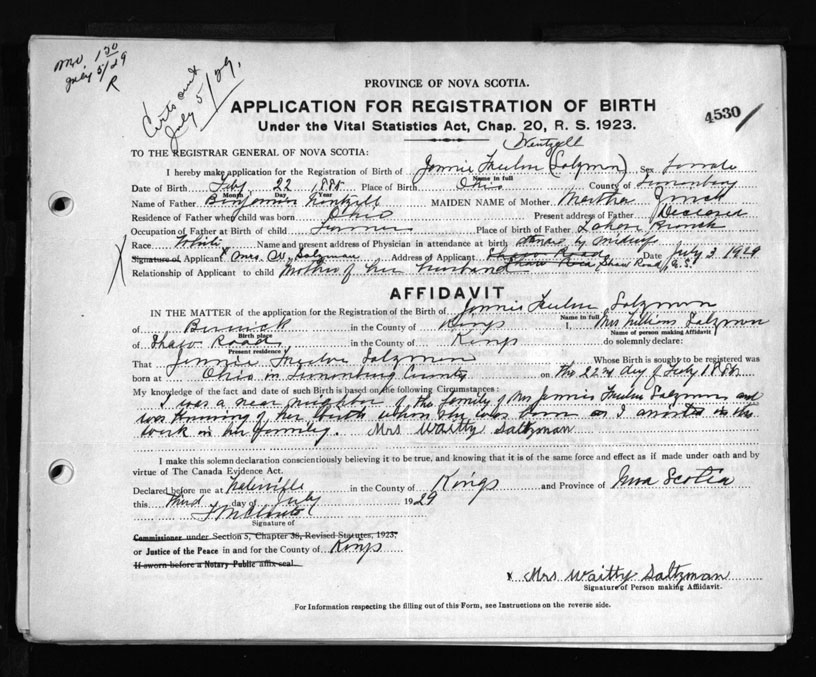 1 50
July 5/29
R
Certs out
July 5/29.
PROVINCE OF NOVA SCOTIA.
APPLICATION FOR REGISTRATION OF BIRTH
4530
Under the Vital Statistics Act, Chap. 20, R. S. 1923.
Wentzell
TO THE REGISTRAR GENERAL OF NOVA SCOTIA:
I hereby make application for the Registration of Birth of (Salzman) Sex female
Name in full
Date of Birth Feby 22 1885 Place of Birth Ohio County of Lunenburg
Month Day Year
Name of Father Benjamin MAIDEN NAME of Mother Martha
Residence of Father when child was born Ohio Present address of Father Deceased
Occupation of Father at Birth of child Farmer Place of birth of Father
Race White Name and present address of Physician in attendance at birth by midwife
Signature of Applicant x Mrs. W. Salzman Address of Applicant Shaw Road, N.S. Date July 3 1929
Relationship of Applicant to child Mother of her husband
AFFIDAVIT
IN THE MATTER of the application for the Registration of the Birth of Salzman
Name in full
of Berwick in the County of Kings I, Mrs Salzman
Birth place Name of person making Affidavit
of Shaw Road in the County of Kings do solemnly declare:
Present residence
That Salzman Whose Birth is sought to be registered was
born at Ohio in Lunenburg County on the 22nd day of Feby 1885
My knowledge of the fact and date of such Birth is based on the following Circumstances:
I was a near neighbor of the family of Mrs Salzman and
was knowing of her birth when she was born as I assisted in the
work in her family. Mrs Waitty Saltzman
I make this solemn declaration conscientiously believing it to be true, and knowing that it is of the same force and effect as if made under oath and by
virtue of The Canada Evidence Act.
Declared before me at in the County of Kings and Province of Nova Scotia
this third day of July 1929
Signature of
Commissioner under Section 5, Chapter 38, Revised Statutes, 1923,
or Justice of the Peace in and for the County of Kings
If sworn before a Notary Public affix seal.
x Mrs Waitty Saltzman
Signature of Person making Affidavit.
For Information respecting the filling out of this Form, see Instructions on the reverse side.